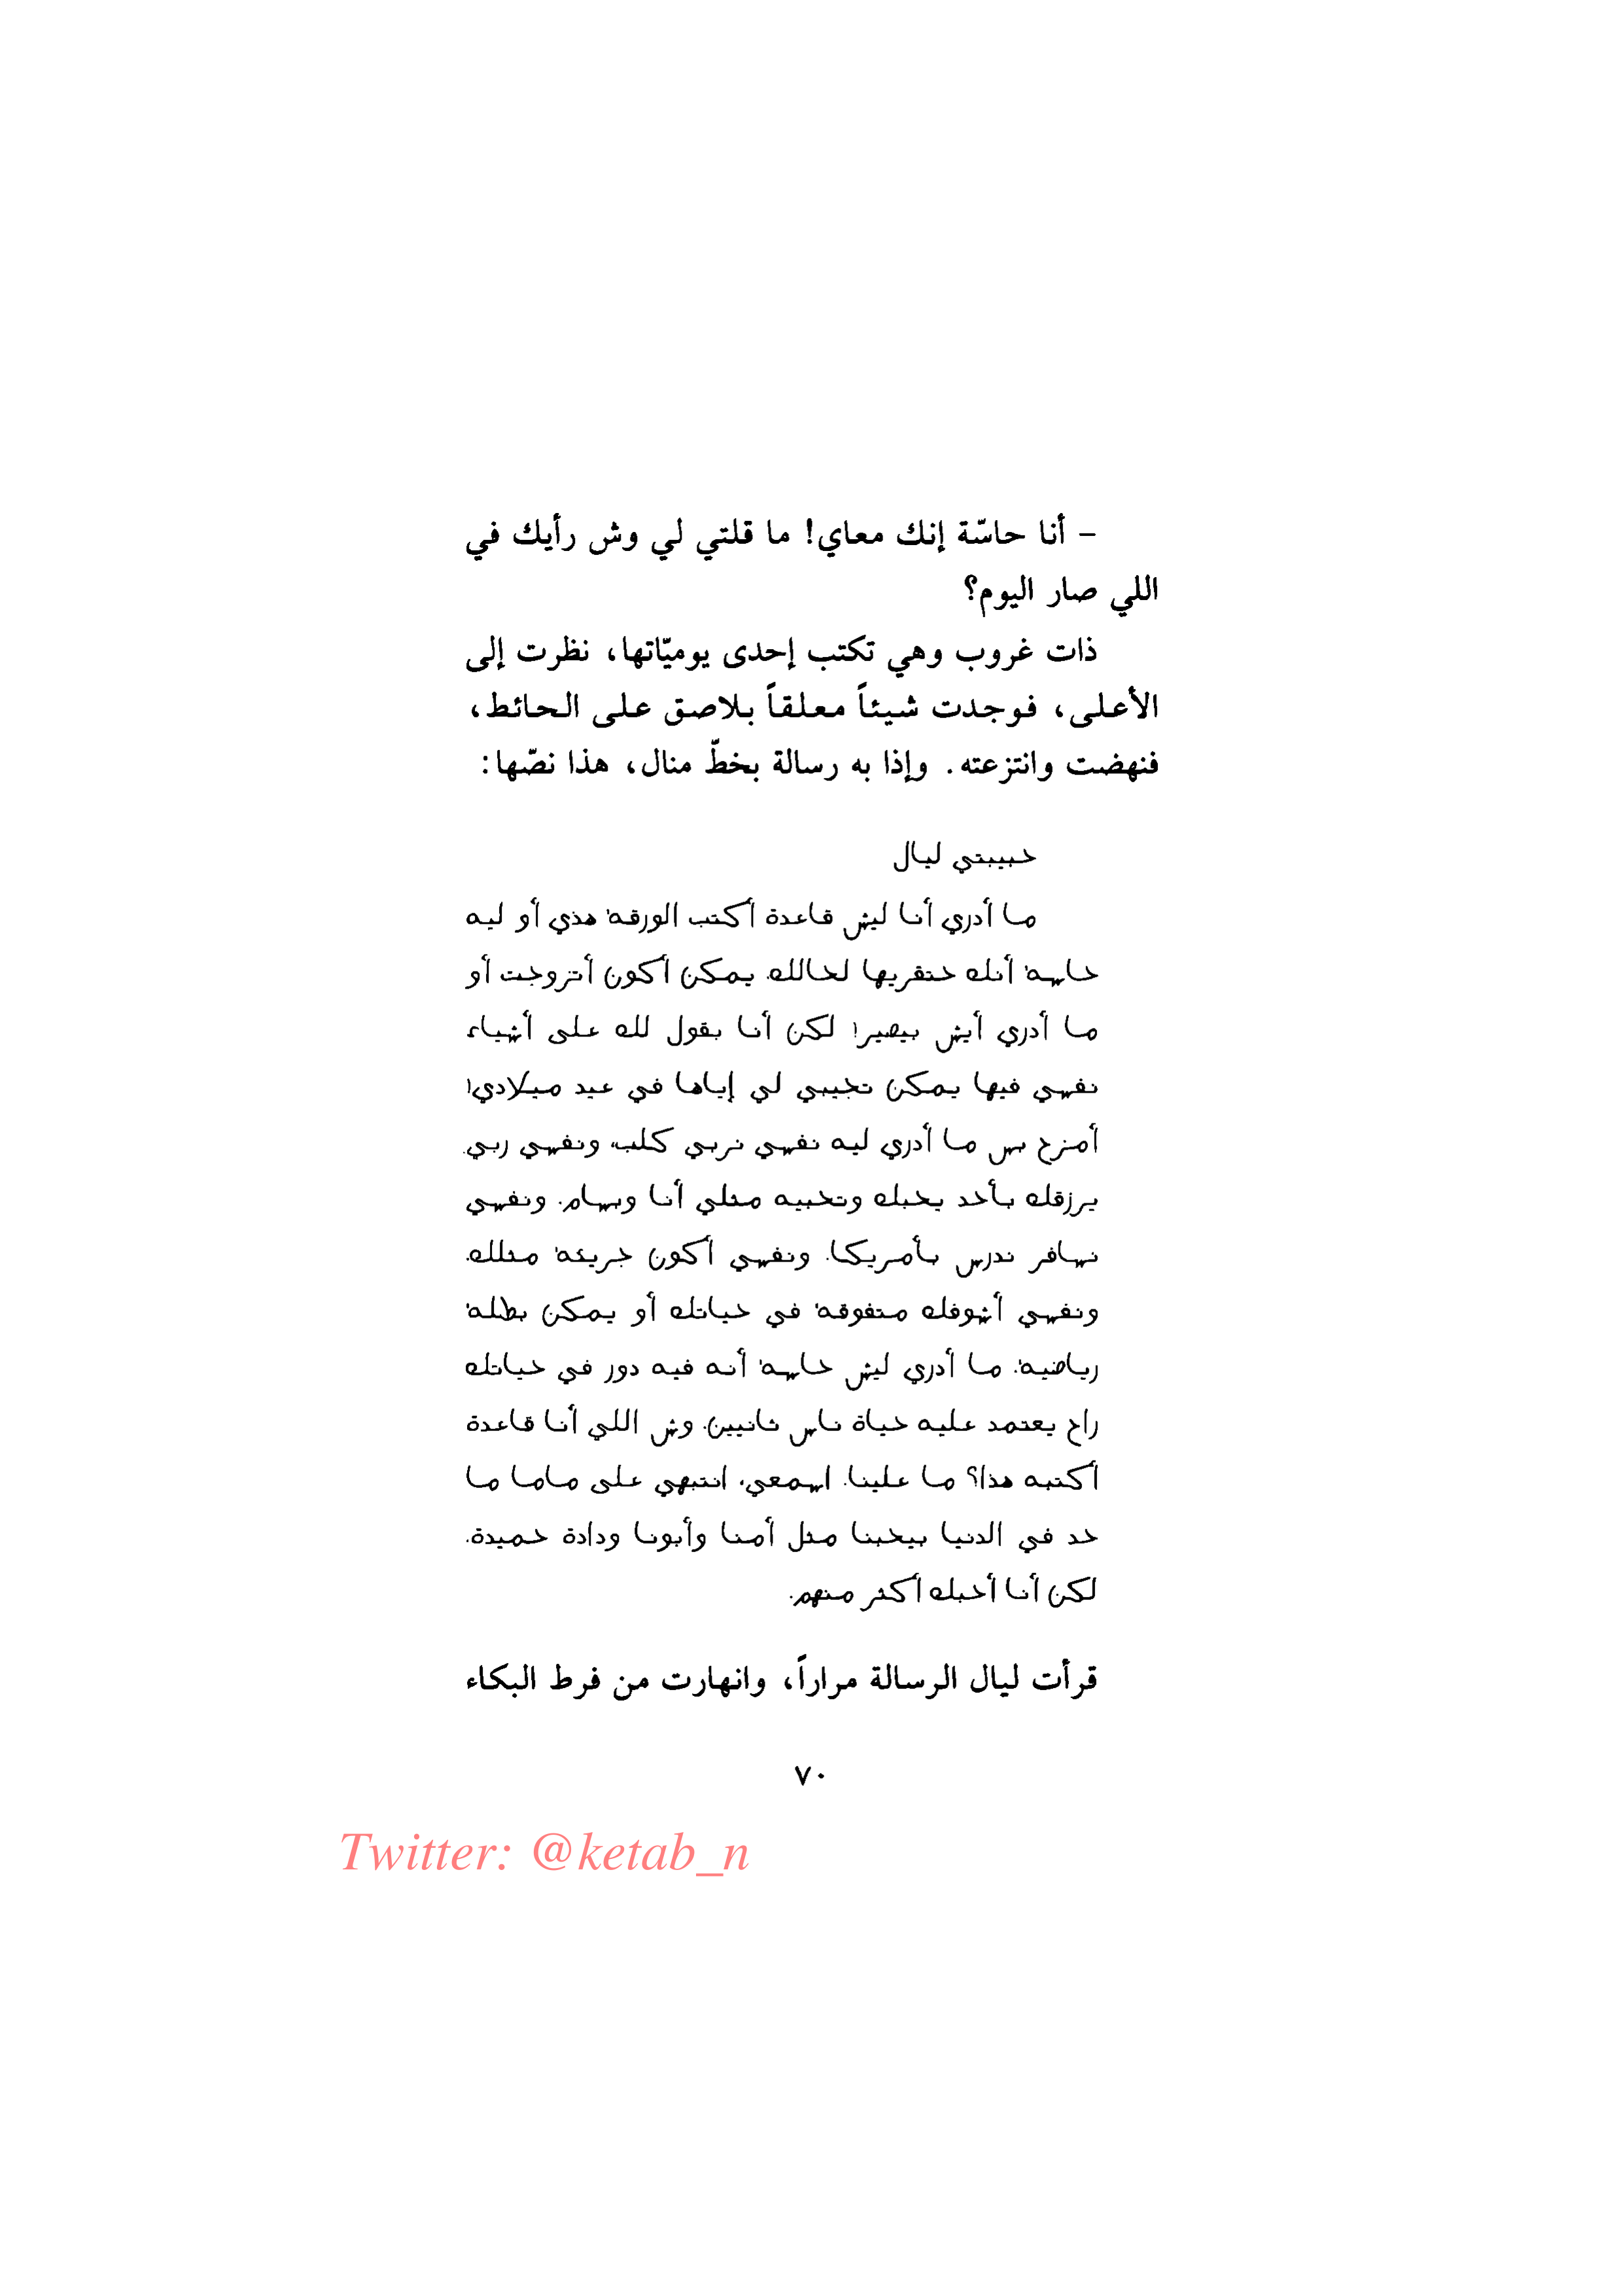 – أنا حاسّة إنك معاي! ما قلتي لي وش رأيك في
اللي صار اليوم؟
ذات غروب وهي تكتب إحدى يوميّاتها، نظرت إلى
الأعلى، فوجدت شيئاً معلقاً بلاصق على الحائط،
فنهضت وانتزعته. وإذا به رسالة بخطّ منال، هذا نصّها:
حبيبتي ليال
ما أدري أنا ليش قاعدة أكتب الورقة هذي أو ليه
حاسة أنك حتقريها لحالك. يمكن أكون أتزوجت أو
ما أدري أيش بيصير! لكن أنا بقول لك على أشياء
نفسي فيها يمكن تجيبي لي إياها في عيد ميلادي!
أمزح بس ما أدري ليه نفسي نربي كلب، ونفسي ربي
يرزقك بأحد يحبك وتحبيه مثلي أنا وبسام. ونفسي
نسافر ندرس بأمريكا. ونفسي أكون جريئة مثلك.
ونفسي أشوفك متفوقة في حياتك أو يمكن بطلة
رياضية. ما أدري ليش حاسة أنه فيه دور في حياتك
راح يعتمد عليه حياة ناس ثانيين. وش اللي أنا قاعدة
أكتبه هذا؟ ما علينا. اسمعي، انتبهي على ماما ما
حد في الدنيا بيحبنا مثل أمنا وأبونا ودادة حميدة.
لكن أنا أحبك أكثر منهم.
قرأت ليال الرسالة مراراً، وانهارت من فرط البكاء
٧٠
Twitter: @ketab_n